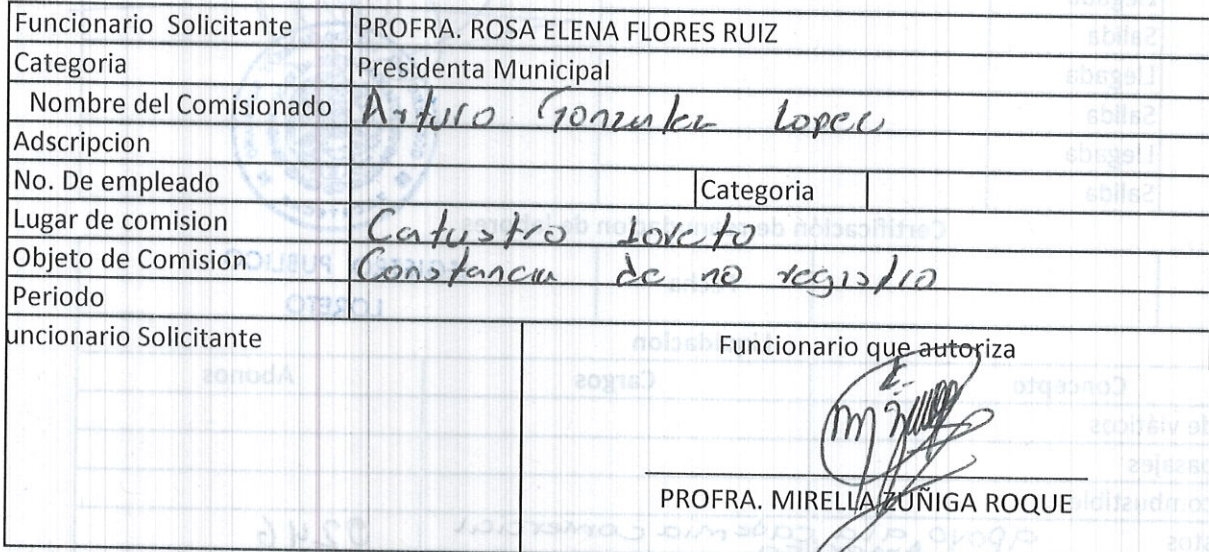 Funcionario Solicitante PROFRA. ROSA ELENA FLORES RUIZ
Categoria Presidenta Municipal
Nombre del Comisionado Arturo Gonzalez Lopez
Adscripcion
No. De empleado Categoria
Lugar de comision Catastro Loreto
Objeto de Comision Constancia de no registro
Periodo
uncionario Solicitante Funcionario que autoriza
PROFRA. MIRELLA ZUÑIGA ROQUE